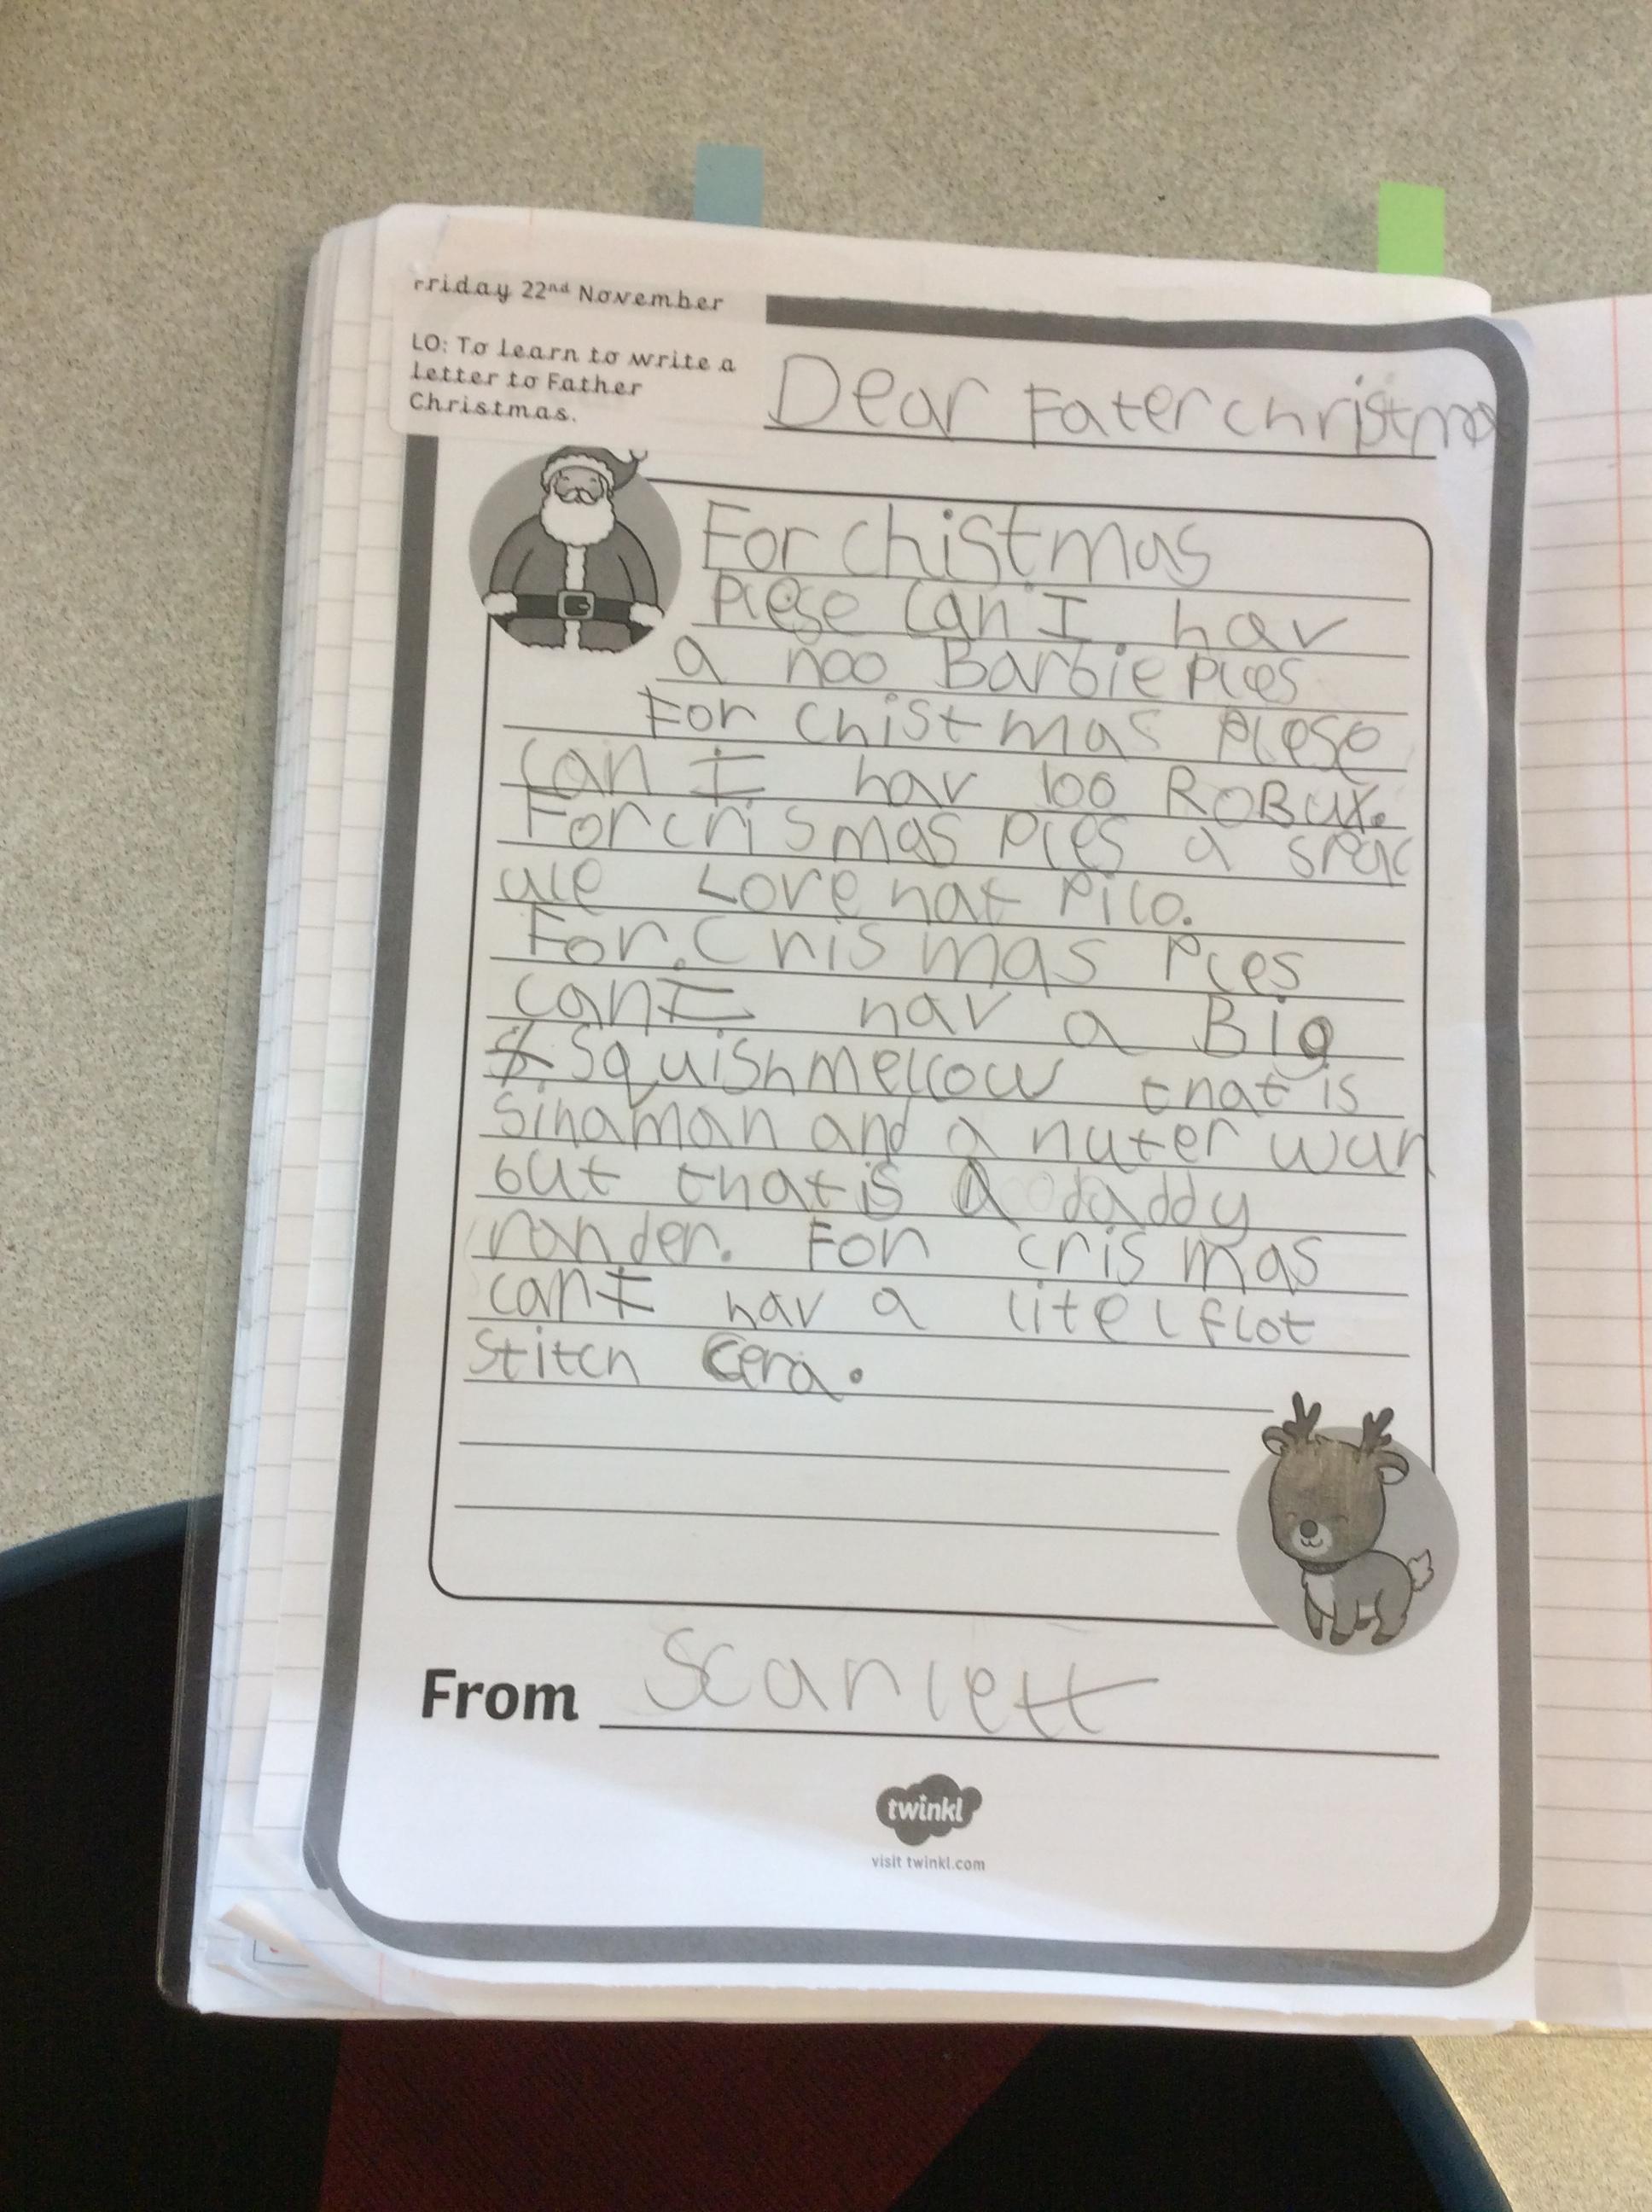 Friday 22nd November
LO: To learn to write a
letter to Father
Christmas.
Dear Fater christmas
For chistmas
Plese can I hav
a noo Barbie Ples
For chistmas Plese
can I hav 100 RoBux.
For crismas Ples a spac
ule Love hat Pilo.
For. Crismas Ples
can I hav a Big
Squishmellow that is
Sinaman and a nuter wun
but that is a daddy
rander. For crismas
can I hav a litel flot
Stitch Cera.
From Scarlett
twinkl
visit twinkl.com